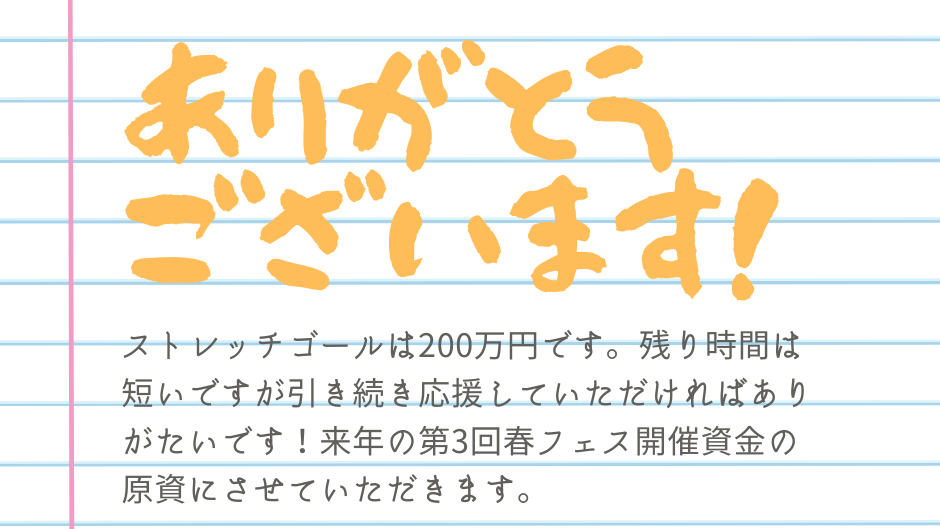 ありがとう
ございます!
ストレッチゴールは200万円です。残り時間は
短いですが引き続き応援していただければあり
がたいです！来年の第3回春フェス開催資金の
原資にさせていただきます。